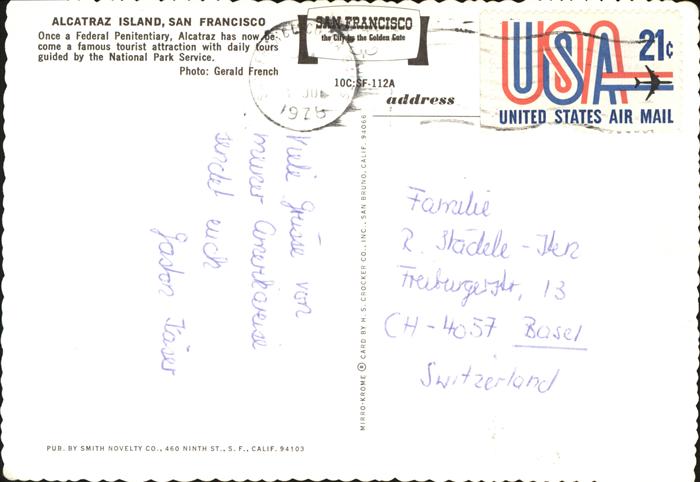 ALCATRAZ ISLAND, SAN FRANCISCO
Once a Federal Penitentiary, Alcatraz has now be-
come a famous tourist attraction with daily tours
guided by the National Park Service.
Photo: Gerald French
SAN FRANCISCO
the City by the Golden Gate
10C:SF-112A
address
USA 21¢
UNITED STATES AIR MAIL
Viele Grüsse von
meiner Amerikareise
sendet euch
Gaston
MIRRO-KROME ® CARD BY H. S. CROCKER CO., INC., SAN BRUNO, CALIF. 94066
Familie
R. Städele -
Freiburgerstr, 13
CH-4057 Basel
Switzerland
PUB. BY SMITH NOVELTY CO., 460 NINTH ST., S. F., CALIF. 94103